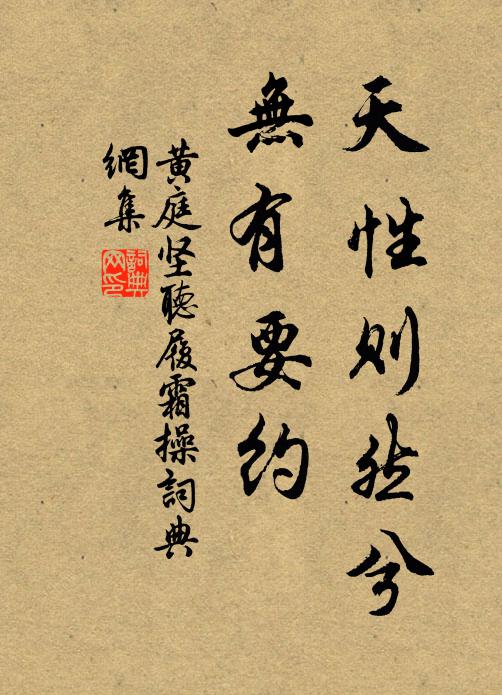 天性則然兮
無有要約
黃庭坚聽履霜操詞典
網集
詞典网印